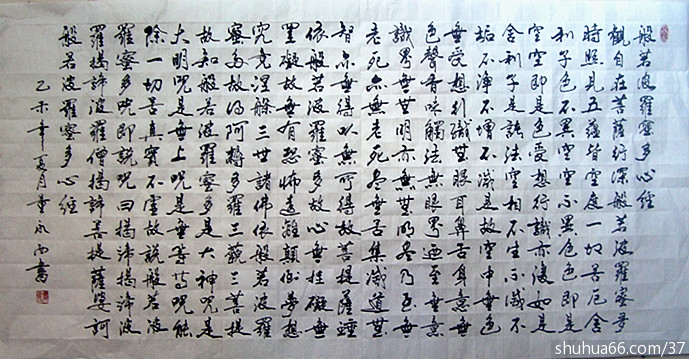 般若波羅蜜多心經
觀自在菩薩行深般若波羅蜜多
時照見五蘊皆空度一切苦厄舍
利子色不異空空不異色色即是
空空即是色受想行識亦復如是
舍利子是諸法空相不生不滅不
垢不淨不增不減是故空中無色
無受想行識無眼耳鼻舌身意無
色聲香味觸法無眼界乃至無意
識界無無明亦無無明盡乃至無
老死亦無老死盡無苦集滅道無
智亦無得以無所得故菩提薩埵
依般若波羅蜜多故心無罣礙無
罣礙故無有恐怖遠離顛倒夢想
究竟涅槃三世諸佛依般若波羅
蜜多故得阿耨多羅三藐三菩提
故知般若波羅蜜多是大神咒是
大明咒是無上咒是無等等咒能
除一切苦真實不虛故說般若波
羅蜜多咒即說咒曰揭諦揭諦波
羅揭諦波羅僧揭諦菩提薩婆訶
般若波羅蜜多心經
乙未年夏月書
shuhua66.com/37